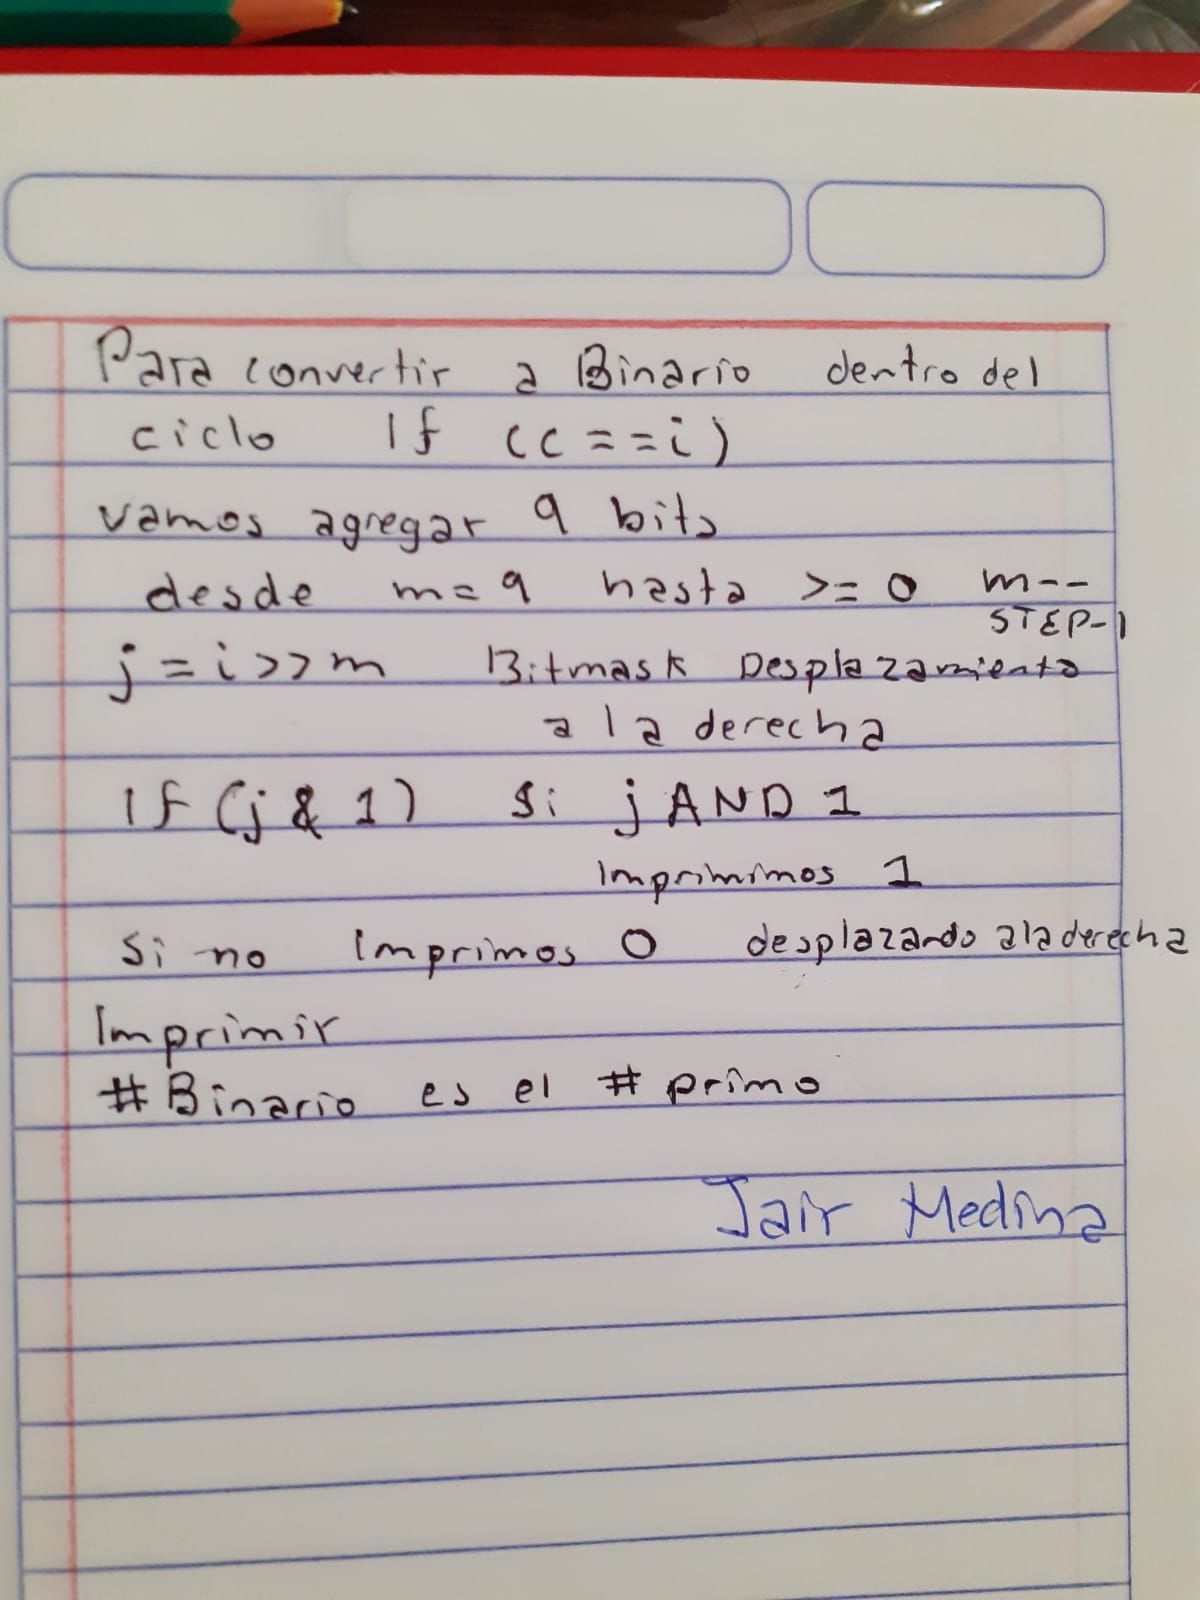 Para convertir a Binario dentro del
ciclo If (c==i)
vamos agregar 9 bits
desde m=9 hasta >=0 m--
STEP-1
j=i>>m Bitmask Desplazamiento
a la derecha
If (j & 1) Si j AND 1
Imprimimos 1
Si no Imprimos 0 desplazando a la derecha
Imprimir
# Binario es el # primo
Jair Medina